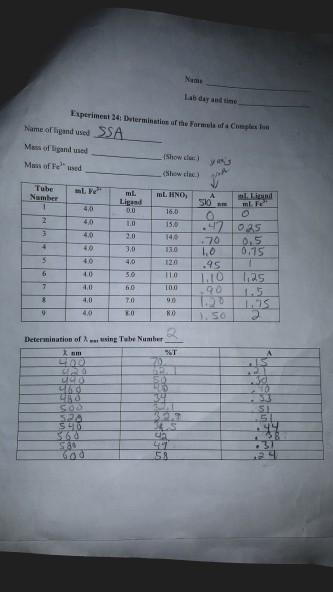 Name
Lab day and time
Experiment 24: Determination of the Formula of a Complex Ion
Name of ligand used SSA
Mass of ligand used (Show clac.)
Mass of Fe3+ used (Show clac.)
Tube Number mL Fe3+ mL Ligand mL HNO3 A 510 nm mL Ligand mL Fe3+
1 4.0 0.0 16.0 0 0
2 4.0 1.0 15.0 .47 025
3 4.0 2.0 14.0 .70 0,5
4 4.0 3.0 13.0 1,0 0,75
5 4.0 4.0 12.0 .95 1
6 4.0 5.0 11.0 1,10 1,25
7 4.0 6.0 10.0 .90 1.5
8 4.0 7.0 9.0 1.20 1.75
9 4.0 8.0 8.0 1.50 2
Determination of λ max using Tube Number 2
λ nm %T A
400 70 .15
420 62.1 .21
440 50 .30
460 40
480 34 .53
500 32.1 .51
520 32.8 .51
540 36.5 .44
560 42 .38
580 47 .31
600 58 .24